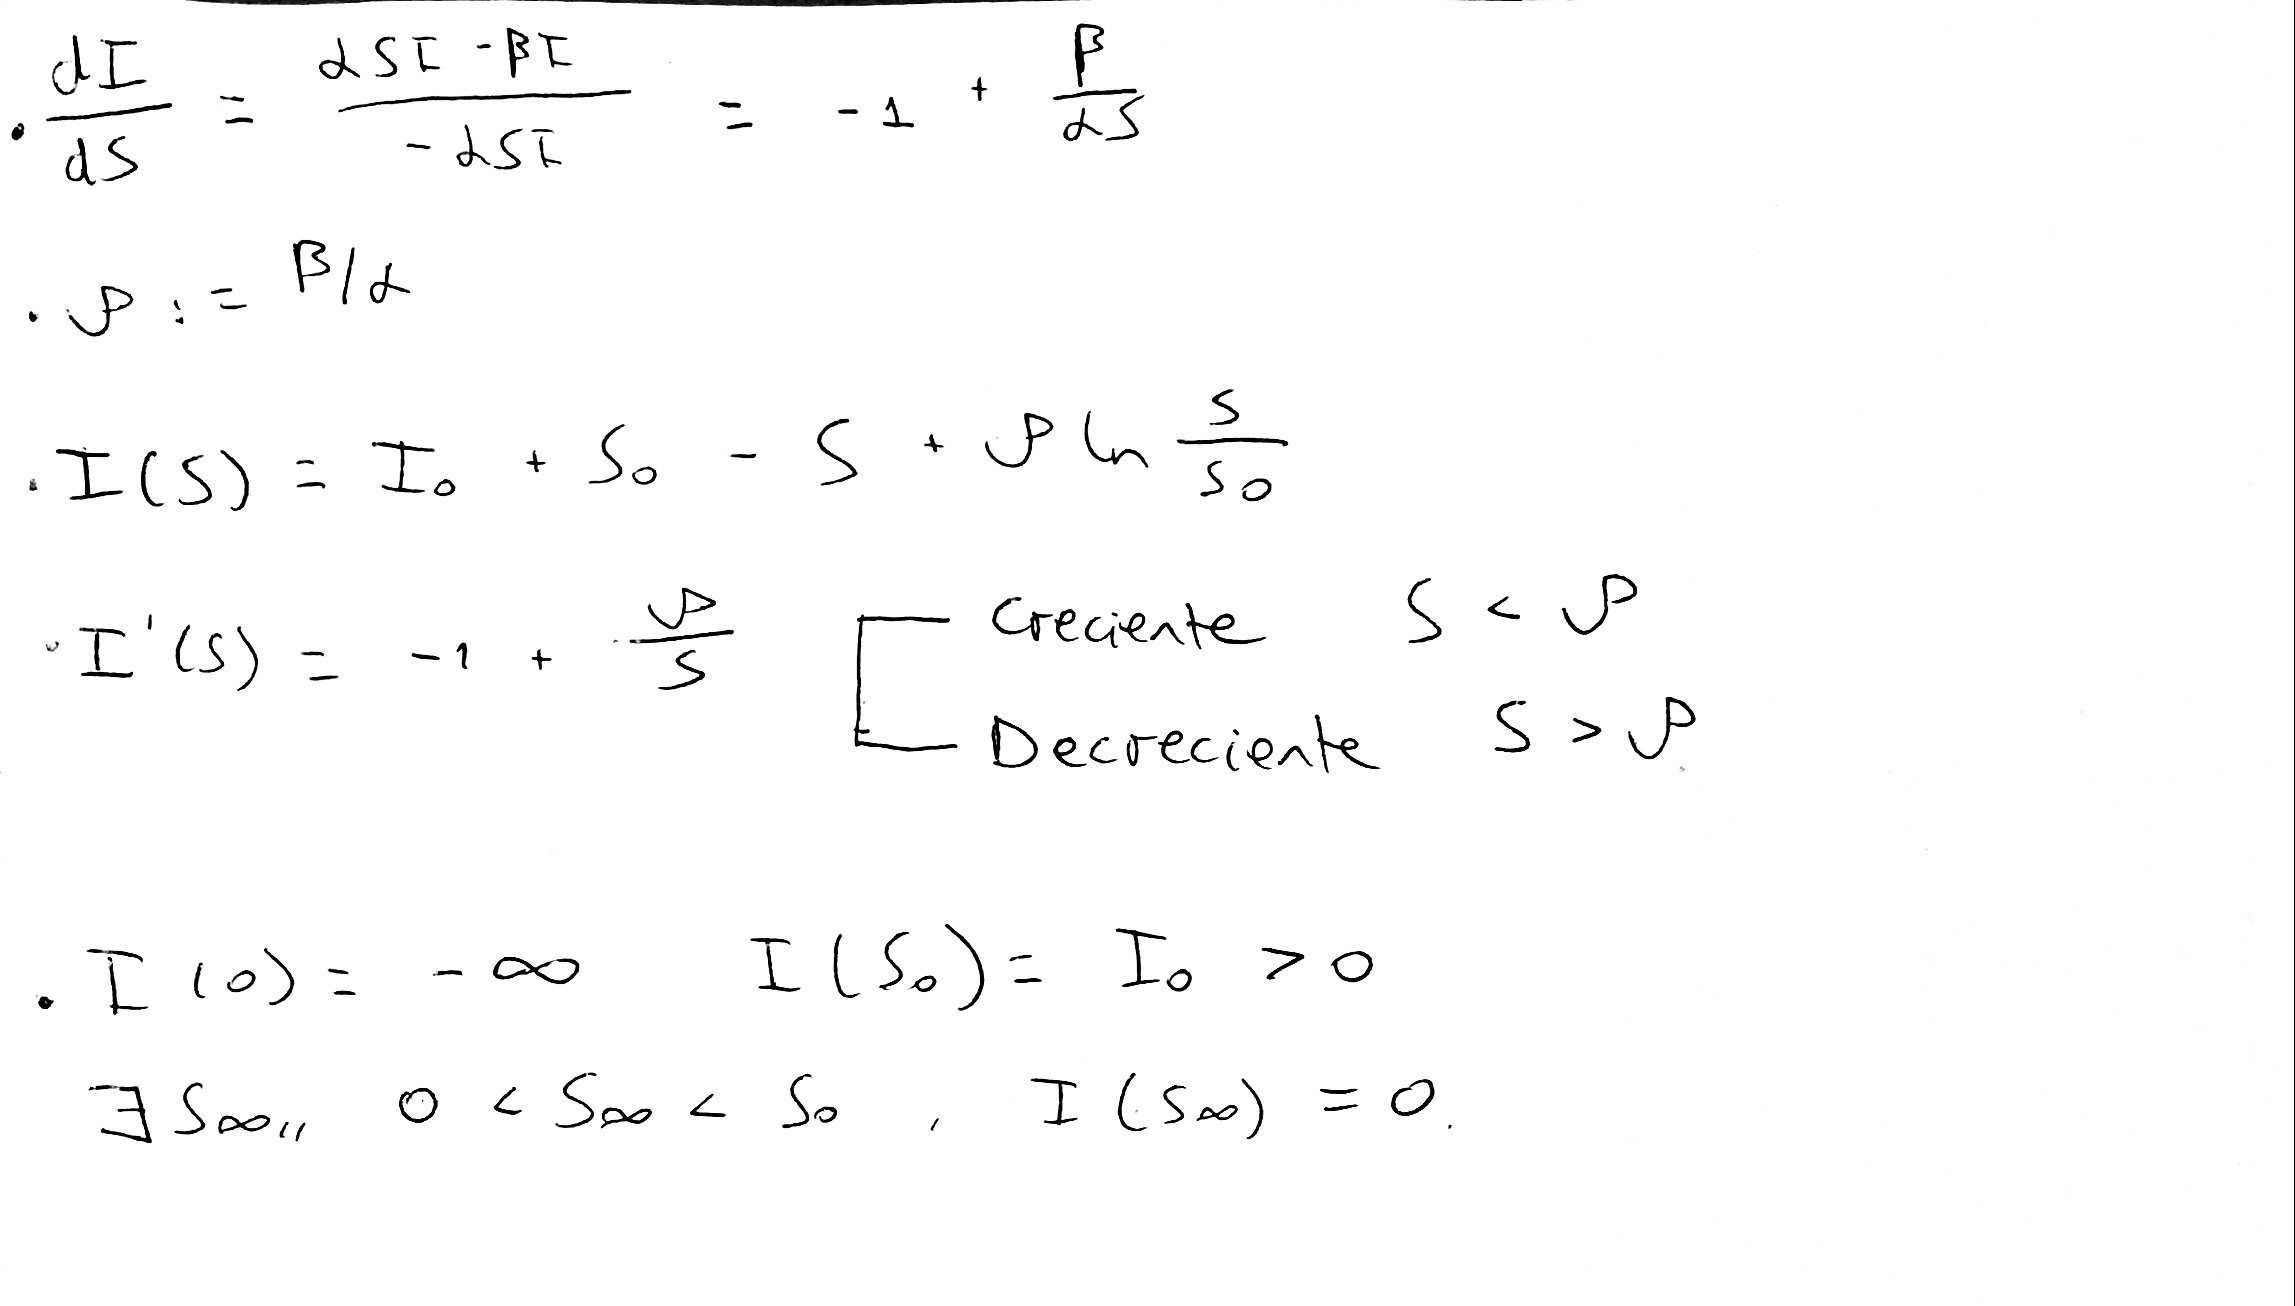 . dI/dS = (αSI - βI)/(-αSI) = -1 + β/(αS)
. ρ := β/α
. I(S) = I₀ + S₀ - S + ρ ln S/S₀
. I'(S) = -1 + ρ/S Creciente S < ρ
Decreciente S > ρ
. I(0) = -∞ I(S₀) = I₀ > 0
∃ S∞,, 0 < S∞ < S₀ , I(S∞) = 0.